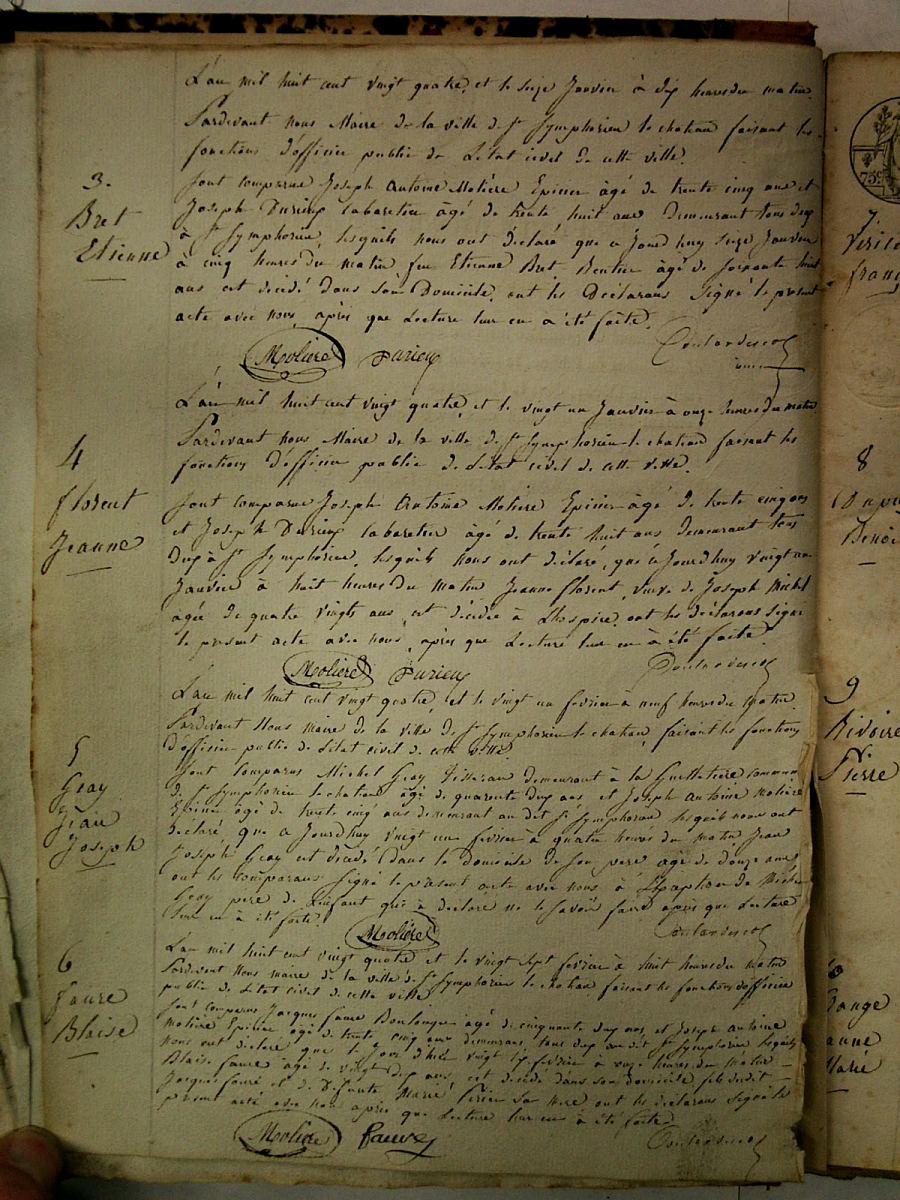 L'an mil huit cent vingt quatre, et le seize Janvier à dix heures du matin.
Pardevant nous Maire de la ville de St Symphorien le chateau faisant les
fonctions d'officier public de l'état civil de cette ville.
3.
Bret
Etienne
Sont comparus Joseph Antoine Molière Epicier âgé de trente cinq ans et
Joseph Durieux Cabaretier âgé de trente huit ans Demeurant tous deux
à St Symphorien, lesquels nous ont Déclaré que ce Jourd'huy Seize Janvier
à cinq heures du matin, feu Etienne Bret, Rentier âgé de soixante huit
ans est decédé dans son Domicile, ont les Déclarans Signé le present
acte avec nous, après que Lecture leur en a été faite.
Molière Durieu
L'an mil huit cent vingt quatre, et le vingt un Janvier à onze heures du matin
Pardevant nous Maire de la ville de St Symphorien le chateau faisant les
fonctions d'officier public de l'état civil de cette ville.
4
florent
Jeanne
Sont comparus Joseph Antoine Molière Epicier âgé de trente cinq ans
et Joseph Durieux Cabaretier âgé de trente huit ans demeurant tous
deux à St Symphorien, lesquels nous ont déclaré, que ce Jourd'huy vingt un
Janvier à huit heures du matin Jeanne florent, veuve de Joseph Michel
agée de quatre vingts ans, est décédée à L'hospice, ont les déclarans signé
le present acte avec nous, après que Lecture leur en a été faite.
Molière Durieu
L'an mil huit cent vingt quatre, et le vingt un fevrier à neuf heures du matin
Pardevant Nous maire de la ville de St Symphorien le chateau, faisant les fonctions
d'officier public de l'état civil de cette ville
5
Gray
Jean
Joseph
Sont Comparus Michel Gray Tisseran demeurant à la Guilletiere commune
de St Symphorien le chateau âgé de quarante deux ans, et Joseph Antoine Molière
Epicier âgé de trente cinq ans demeurant au dit St Symphorien lesquels nous ont
déclaré que ce Jourd'huy vingt un fevrier à quatre heures du matin, Jean
Joseph Gray est decédé dans le domicile de son pere agé de douze ans,
ont les comparans Signé le présent acte avec nous à L'exception de Michel
Gray pere de L'enfant qui a declaré ne le savoir faire après que Lecture
leur en a été faite.
Molière
L'an mil huit cent vingt quatre et le vingt Sept fevrier à huit heures du matin
Pardevant Nous maire de la ville de St Symphorien le chateau faisant les fonctions d'officier
public de l'état civil de cette ville.
6
Faure
Blaise
Sont comparus Jacques Faure Boulanger agé de cinquante deux ans, et Joseph Antoine
Molière Epicier âgé de trente cinq ans demeurans tous deux au dit St Symphorien lesquels
nous ont déclaré que le Jour d'hier vingt six fevrier à onze heures du matin
Blaise Faure agé de vingt deux ans, est décédé dans son domicile, fils du dit
Jacques Faure et de Défunte Marie sa mere ont les déclarans Signé le
présent acte avec nous après que Lecture leur en a été faite.
Molière Faure
75c
7.
franç
8
Benoi
9
Rivoire
Pierre
anne
Marie